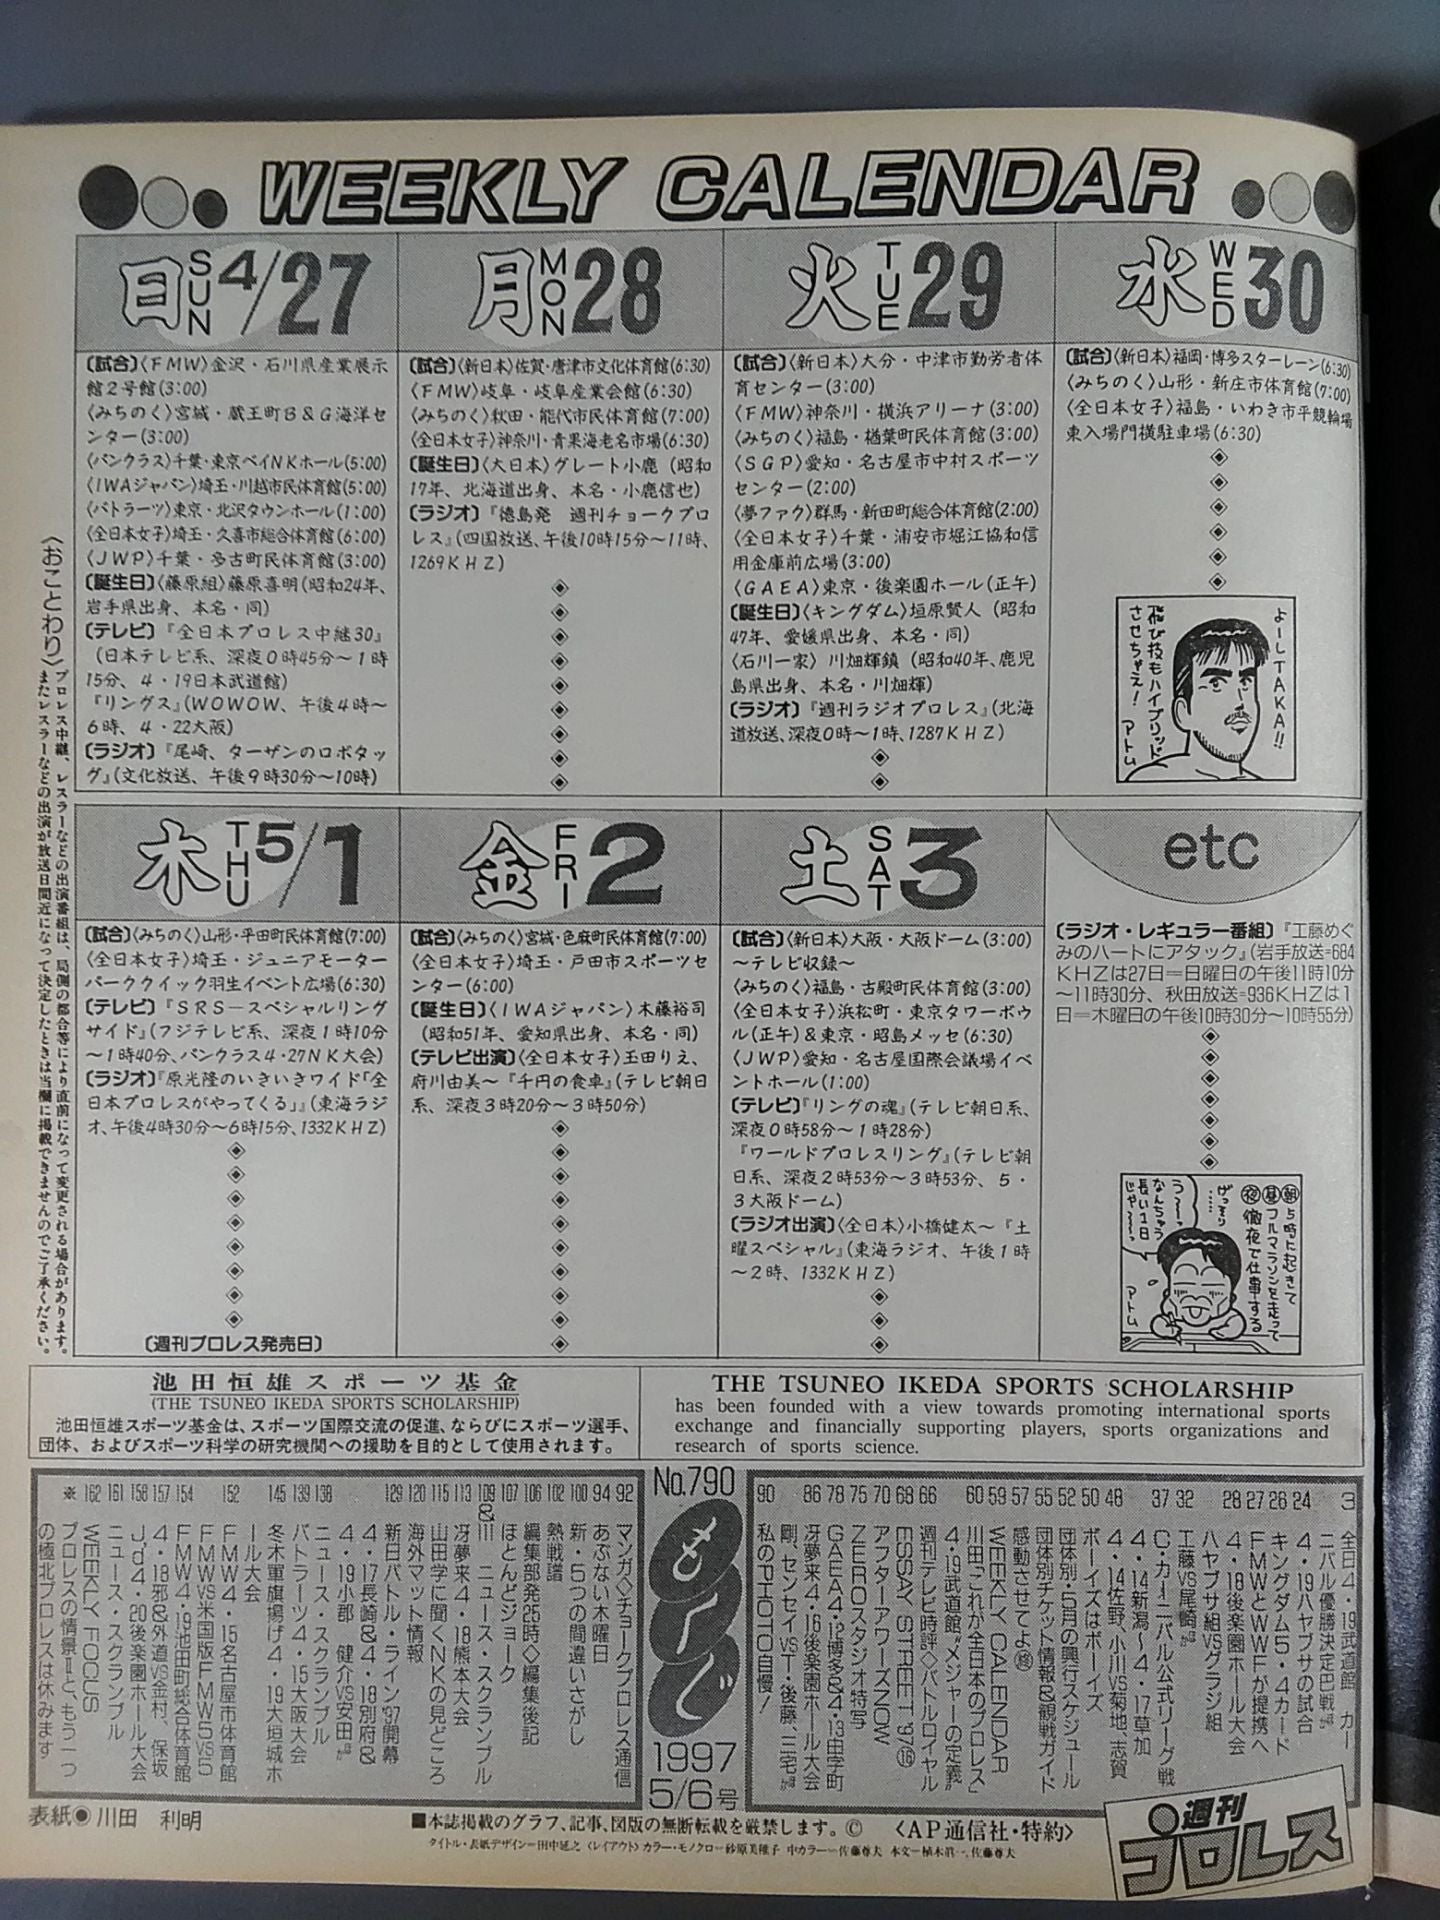 WEEKLY CALENDAR
日 SUN 4/27
〔試合〕〈FMW〉金沢・石川県産業展示
館2号館(3:00)
〈みちのく〉宮城・蔵王町B&G海洋セ
ンター(3:00)
〈パンクラス〉千葉・東京ベイNKホール(5:00)
〈IWAジャパン〉埼玉・川越市民体育館(5:00)
〈バトラーツ〉東京・北沢タウンホール(1:00)
〈全日本女子〉埼玉・久喜市総合体育館(6:00)
〈JWP〉千葉・多古町民体育館(3:00)
〔誕生日〕〈藤原組〉藤原喜明(昭和24年、
岩手県出身、本名・同)
〔テレビ〕『全日本プロレス中継30』
(日本テレビ系、深夜0時45分〜1時
15分、4・19日本武道館)
『リングス』(WOWOW、午後4時〜
6時、4・22大阪)
〔ラジオ〕『尾崎、ターザンのロボタッ
グ』(文化放送、午後9時30分〜10時)
月 MON 28
〔試合〕〈新日本〉佐賀・唐津市文化体育館(6:30)
〈FMW〉岐阜・岐阜産業会館(6:30)
〈みちのく〉秋田・能代市民体育館(7:00)
〈全日本女子〉神奈川・青果海老名市場(6:30)
〔誕生日〕〈大日本〉グレート小鹿(昭和
17年、北海道出身、本名・小鹿信也)
〔ラジオ〕『徳島発 週刊チョークプロ
レス』(四国放送、午後10時15分〜11時、
1269KHZ)
火 TUE 29
〔試合〕〈新日本〉大分・中津市勤労者体
育センター(3:00)
〈FMW〉神奈川・横浜アリーナ(3:00)
〈みちのく〉福島・楢葉町民体育館(3:00)
〈SGP〉愛知・名古屋市中村スポーツ
センター(2:00)
〈夢ファク〉群馬・新田町総合体育館(2:00)
〈全日本女子〉千葉・浦安市堀江協和信
用金庫前広場(3:00)
〈GAEA〉東京・後楽園ホール(正午)
〔誕生日〕〈キングダム〉垣原賢人(昭和
47年、愛媛県出身、本名・同)
〈石川一家〉川畑輝鎮(昭和40年、鹿児
島県出身、本名・川畑輝)
〔ラジオ〕『週刊ラジオプロレス』(北海
道放送、深夜0時〜1時、1287KHZ)
水 WED 30
〔試合〕〈新日本〉福岡・博多スターレーン(6:30)
〈みちのく〉山形・新庄市体育館(7:00)
〈全日本女子〉福島・いわき市平競輪場
東入場門横駐車場(6:30)
よーしTAKA!!
飛び技もハイブリッド
させちゃえ!
アトム
木 THU 5/1
〔試合〕〈みちのく〉山形・平田町民体育館(7:00)
〈全日本女子〉埼玉・ジュニアモーター
パーククイック羽生イベント広場(6:30)
〔テレビ〕『SRS−スペシャルリング
サイド』(フジテレビ系、深夜1時10分
〜1時40分、パンクラス4・27NK大会)
〔ラジオ〕『原光隆のいきいきワイド「全
日本プロレスがやってくる」』(東海ラジ
オ、午後4時30分〜6時15分、1332KHZ)
〔週刊プロレス発売日〕
金 FRI 2
〔試合〕〈みちのく〉宮城・色麻町民体育館(7:00)
〈全日本女子〉埼玉・戸田市スポーツセ
ンター(6:00)
〔誕生日〕〈IWAジャパン〉木藤裕司
(昭和51年、愛知県出身、本名・同)
〔テレビ出演〕〈全日本女子〉玉田りえ、
府川由美〜『千円の食卓』(テレビ朝日
系、深夜3時20分〜3時50分)
土 SAT 3
〔試合〕〈新日本〉大阪・大阪ドーム(3:00)
〜テレビ収録〜
〈みちのく〉福島・古殿町民体育館(3:00)
〈全日本女子〉浜松町・東京タワーボウ
ル(正午)&東京・昭島メッセ(6:30)
〈JWP〉愛知・名古屋国際会議場イベ
ントホール(1:00)
〔テレビ〕『リングの魂』(テレビ朝日系、
深夜0時58分〜1時28分)
『ワールドプロレスリング』(テレビ朝
日系、深夜2時53分〜3時53分、5・
3大阪ドーム)
〔ラジオ出演〕〈全日本〉小橋健太〜『土
曜スペシャル』(東海ラジオ、午後1時
〜2時、1332KHZ)
etc
〔ラジオ・レギュラー番組〕『工藤めぐ
みのハートにアタック』(岩手放送=684
KHZは27日=日曜日の午後11時10分
〜11時30分、秋田放送=936KHZは1
日=木曜日の午後10時30分〜10時55分)
朝5時に起きて
昼フルマラソンを走って
夜徹夜で仕事する
げっそり……
う〜っ
なんちゅう
長い1日
じゃ〜っ
アトム
〈おことわり〉プロレス中継、レスラーなどの出演番組は、局側の都合等により直前になって変更される場合があります。
またレスラーなどの出演が放送日間近になって決定したときは当欄に掲載できませんのでご了承ください。
池田恒雄スポーツ基金
(THE TSUNEO IKEDA SPORTS SCHOLARSHIP)
池田恒雄スポーツ基金は、スポーツ国際交流の促進、ならびにスポーツ選手、
団体、およびスポーツ科学の研究機関への援助を目的として使用されます。
THE TSUNEO IKEDA SPORTS SCHOLARSHIP
has been founded with a view towards promoting international sports
exchange and financially supporting players, sports organizations and
research of sports science.
3 全日4・19武道館 カー
ニバル優勝決定巴戦ほか
24 4・19ハヤブサの試合
26 キングダム5・4カード
27 FMWとWWFが提携へ
28 4・18後楽園ホール大会
ハヤブサ組VSグラジ組
32 工藤VS尾崎ほか
37 C・カーニバル公式リーグ戦
4・14新潟〜4・17草加
48 4・14佐野、小川VS菊地、志賀
50 ボーイズはボーイズ
52 団体別・5月の興行スケジュール
55 団体別チケット情報&観戦ガイド
57 感動させてよ
59 WEEKLY CALENDAR
60 川田「これが全日本のプロレス」
4・19武道館“メジャーの定義”
66 週刊テレビ時評◇バトルロイヤル
68 ESSAY STREET '97
70 アフターアワーズNOW
75 ZEROスタジオ特写
78 GAEA4・12博多&4・13由宇町
86 冴夢来4・16後楽園ホール大会
剛、センセイVST・後藤、三宅ほか
90 私のPHOTO自慢!
No.790
もくじ
1997
5/6号
92 マンガ◇チョークプロレス通信
94 あぶない木曜日
100 新・5つの間違いさがし
102 熱戦譜
106 編集部発25時◇編集後記
107 ほとんどジョーク
109&111 ニュース・スクランブル
113 冴夢来4・18熊本大会
115 山田学に聞くNKの見どころ
120 海外マット情報
129 新日バトル・ライン'97開幕
4・17長崎&4・18別府&
4・19小郡 健介VS安田ほか
138 ニュース・スクランブル
139 バトラーツ4・15大阪大会
145 冬木軍旗揚げ4・19大垣城ホ
ール大会
152 FMW4・15名古屋市体育館
FMWVS米国版FMW5VS5
154 FMW4・19池田町総合体育館
157 4・18邪&外道VS金村、保坂
158 J'd4・20後楽園ホール大会
161 ニュース・スクランブル
162 WEEKLY FOCUS
※ プロレスの情景Ⅱと、もう一つ
の極北プロレスは休みます
表紙●川田 利明
■本誌掲載のグラフ、記事、図版の無断転載を厳禁します。© 〈AP通信社・特約〉
タイトル・表紙デザイン=田中延之〈レイアウト〉カラー・モノクロ=砂原美穂子 中カラー=佐藤尊夫 本文=植木眞一、佐藤尊夫
週刊
プロレス